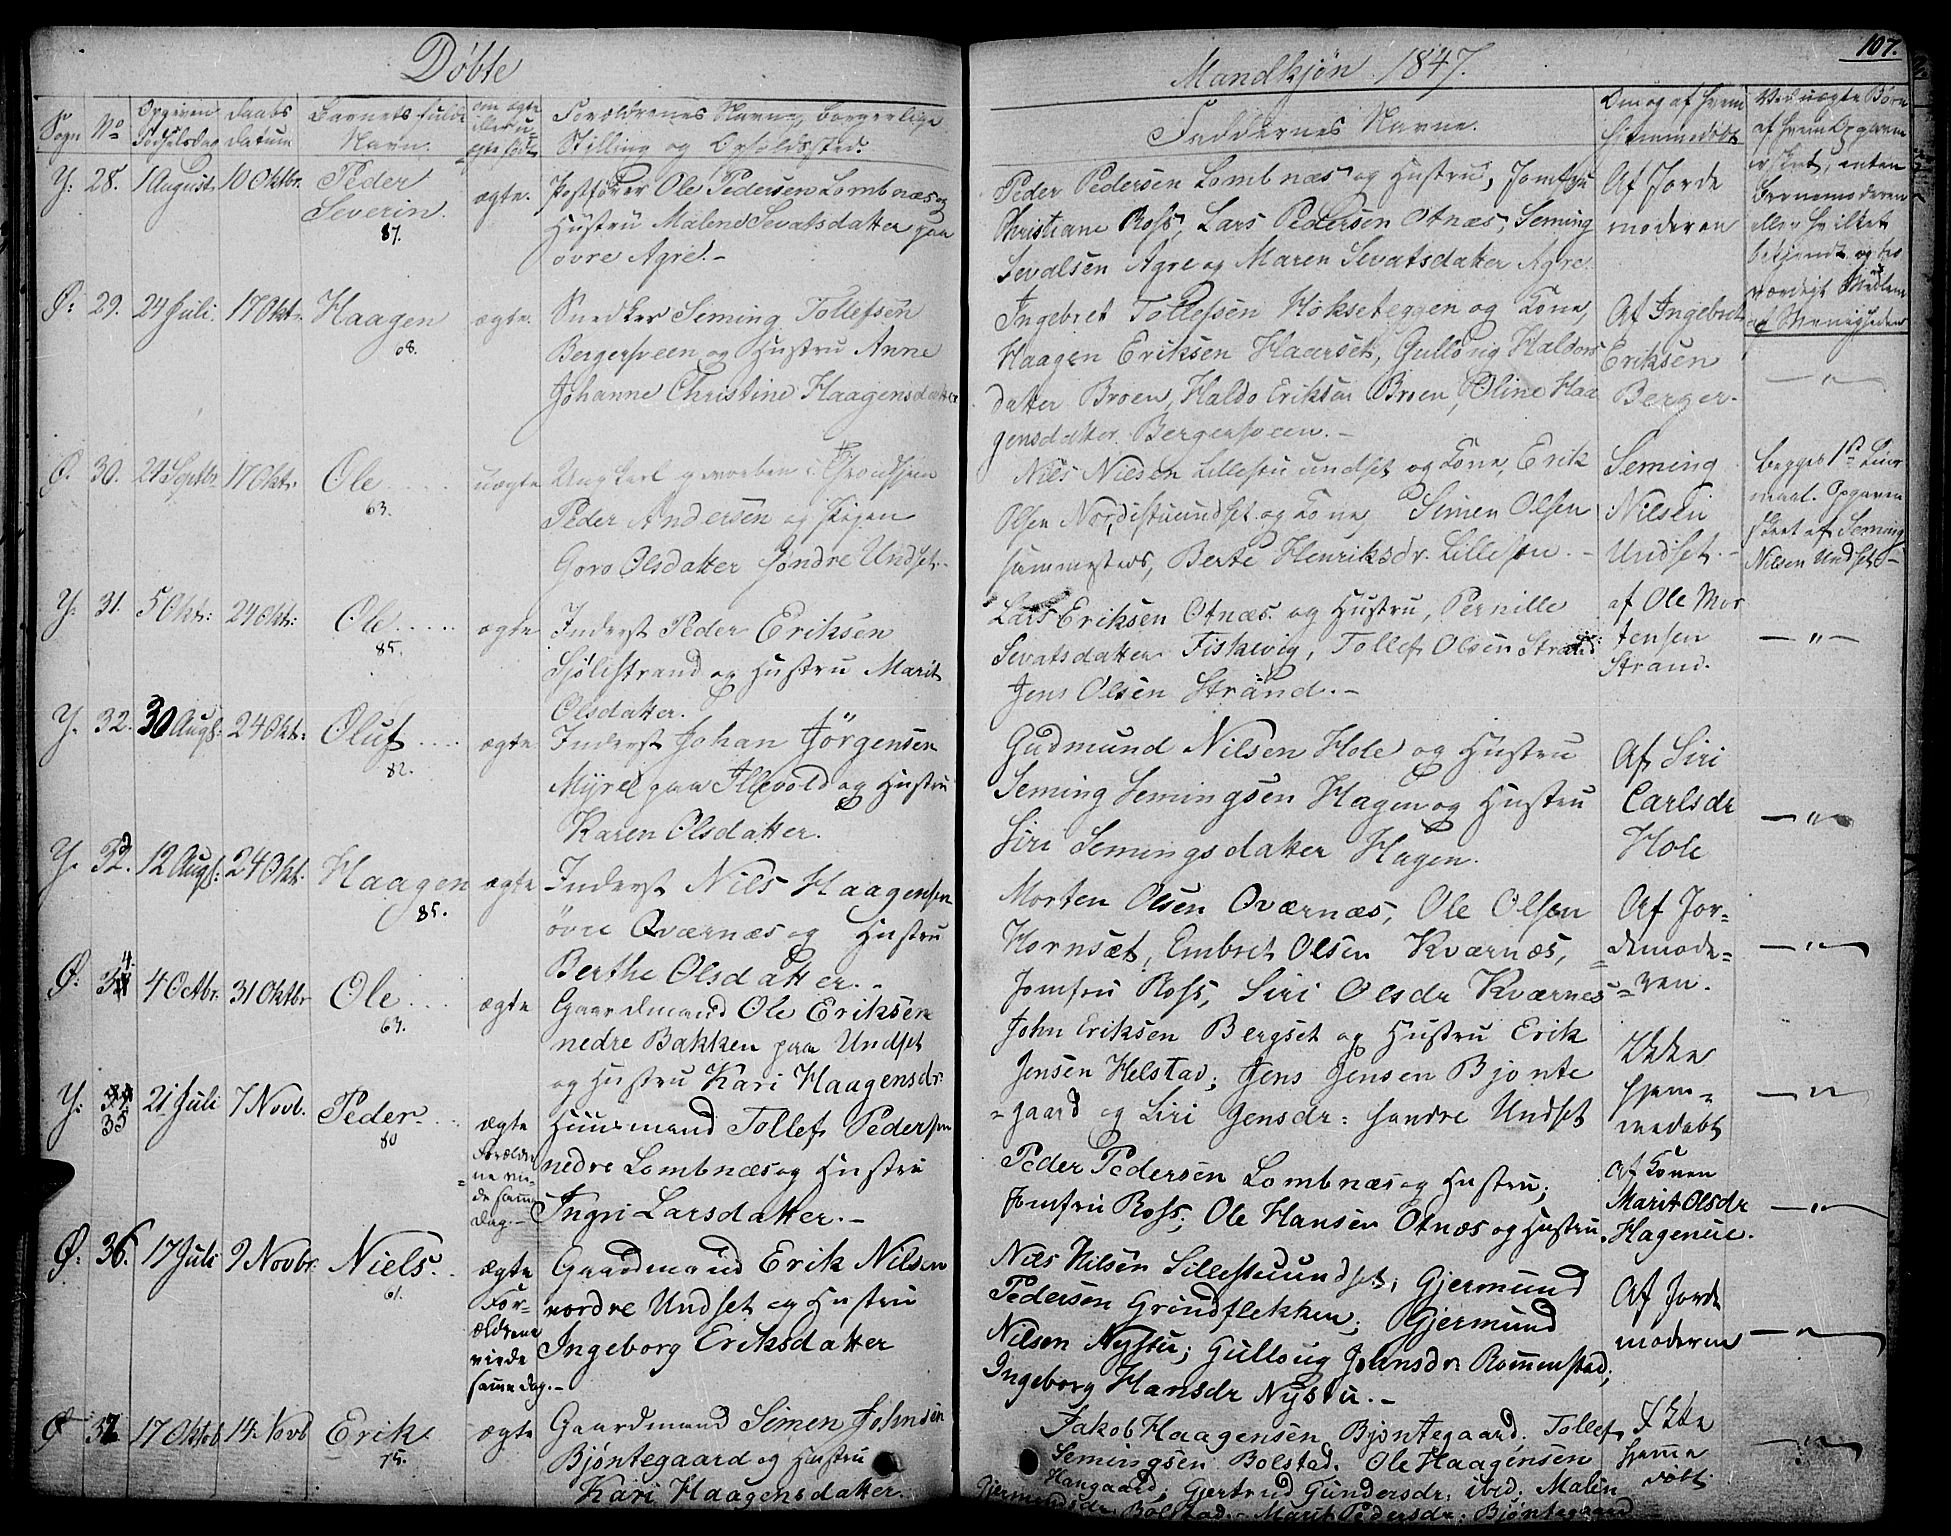 Döbte
Mandkjön 1847.
107.
Sogn No Opgiven Födselsdag Daabs Datum Barnets fulde Navn. om ægte eller uægte født Forældrenes Navne, borgerlige Stilling og Opholdssted.
Faddernes Navne.
Om og af hvem hjemmedöbt
Ved uægte Börn af hvem Opgaven er skeet, enten Barnemoderen eller hvilket bekjendt og troværdigt Medlem af Menigheden
Y: 28. 1 August. 10 Oktbr. Peder Severin. 87. ægte.
Ole Pedersen Lombnæs og
Hustru Malene Sevatsdatter paa
övre Agre.
Peder Pedersen Lombnæs og Hustru, Jomfru
Christiane Ross, Lars Pedersen Otnæs, Seming
Sevalsen Agre og Maren Sevatsdatter Agre.
Af Jorde
moderen
Ø: 29. 24 Juli. 17 Oktr. Haagen 68. ægte.
Snedker Seming Tollefsen
Bergersveen og Hustru Anne
Johanne Christine Haagensdatter
Ingebret Tollefsen Hokseteggen og Kone,
Haagen Eriksen Haarset, Gullovig Haldors
datter Broen, Haldo Eriksen Broen, Oline Haa
gensdatter Bergersveen. -
Af Ingebret
Eriksen
Berger-
Ø. 30. 24 Septbr. 17 Oktr. Ole 63. uægte
Ungkarl
Peder Andersen og Pigen
Goro Olsdatter söndre Undset.
Nils Nielsen Lillestuundset og Kone, Erik
Olsen Nordistuundset og Kone, Simen Olsen
sammesteds, Berte Henriksdr. Lillesen. -
Seming
Nilsen
Undset. -
begges 1ste Leier
maal. Opgaven
skeet af Seming
Nilsen Undset -
Y. 31. 5 Okt: 24 Okt: Ole 85. ægte
Inderst Peder Eriksen
Sjölistrand og Hustru Marit
Olsdatter.
Lars Eriksen Otnæs og Hustru, Pernille
Sevatsdatter Fiskevig, Tollef Olsen Strand
Jens Olsen Strand. -
af Ole Mor
tensen
Strand.
Y. 32. 30 Augs: 24 Okt: Oluf 82. ægte
Inderst Johan Jörgensen
Myre paa Illevold og Hustru
Karen Olsdatter.
Gudmund Nilsen Hole og Hustru
Seming Semingsen Hagen og Hustru
Siri Semingsdatter Hagen.
Af Siri
Carlsdr
Hole
Y. 12 Augs: 24 Okt. Haagen 85. ægte
Inderst Nils Haagensen
övre Qværnæs og Hustru
Berthe Olsdatter. -
Morten Olsen Qværnæs, Ole Olsen
Hornsæt, Embret Olsen Kværnæs,
Jomfru Ross, Siri Olsdr Kværnes
Af Jor-
demode-
ren.
Ø: 34 4 Octbr. 31 Oktbr Ole 63. ægte
Gaardmand Ole Eriksen
nedre Bakken paa Undset
og Hustru Kari Haagensdr.
John Eriksen Bergset og Hustru Erik
Jensen Helstad; Jens Jensen Bjønte
gaard og Siri Jensdr: søndre Undset
Ikke
hjem-
medøbt
Y: 35 21 Juli 7 Novb. Peder 80 ægte Forældre ne vie de samme Dag. -
Huusmand Tollef Pedersen
nedre Lombnæs og Hustru
Ingri Larsdatter. -
Peder Pedersen Lombnæs og Hustru;
Jomfru Ross; Ole Hansen Otnæs og Hustru.
af Konen
Marit Olsdr
Hagenue.
Ø: 36. 17 Juli 9 Novbr. Niels. 61. ægte For- ældrene viede samme Dag. -
Gaardmand Erik Nilsen
nordre Undset og Hustru
Ingeborg Eriksdatter
Nils Nilsen Lillestuundset; Gjermund
Pedersen Grindflekken; Gjermund
Nilsen Nystu; Gulloug Johnsdr Rommenstad;
Ingeborg Hansdr Nystu. -
Af Jorde
moderen
Ø 37 17 Oktob 14. Novb Erik 75. ægte
Gaardmand Simen Johnsen
Bjöntegaard og Hustru
Kari Haagensdatter.
Jakob Haagensen Bjöntegaard. Tollef
Semingsen Bolstad. Ole Haagensen
Haugaard; Gjertrud Gundersdr: ibid: Malin
Gjermundsdr Bolstad. Marit Pedersdr: Bjöntegaard
Ikke
hjemme
döbt